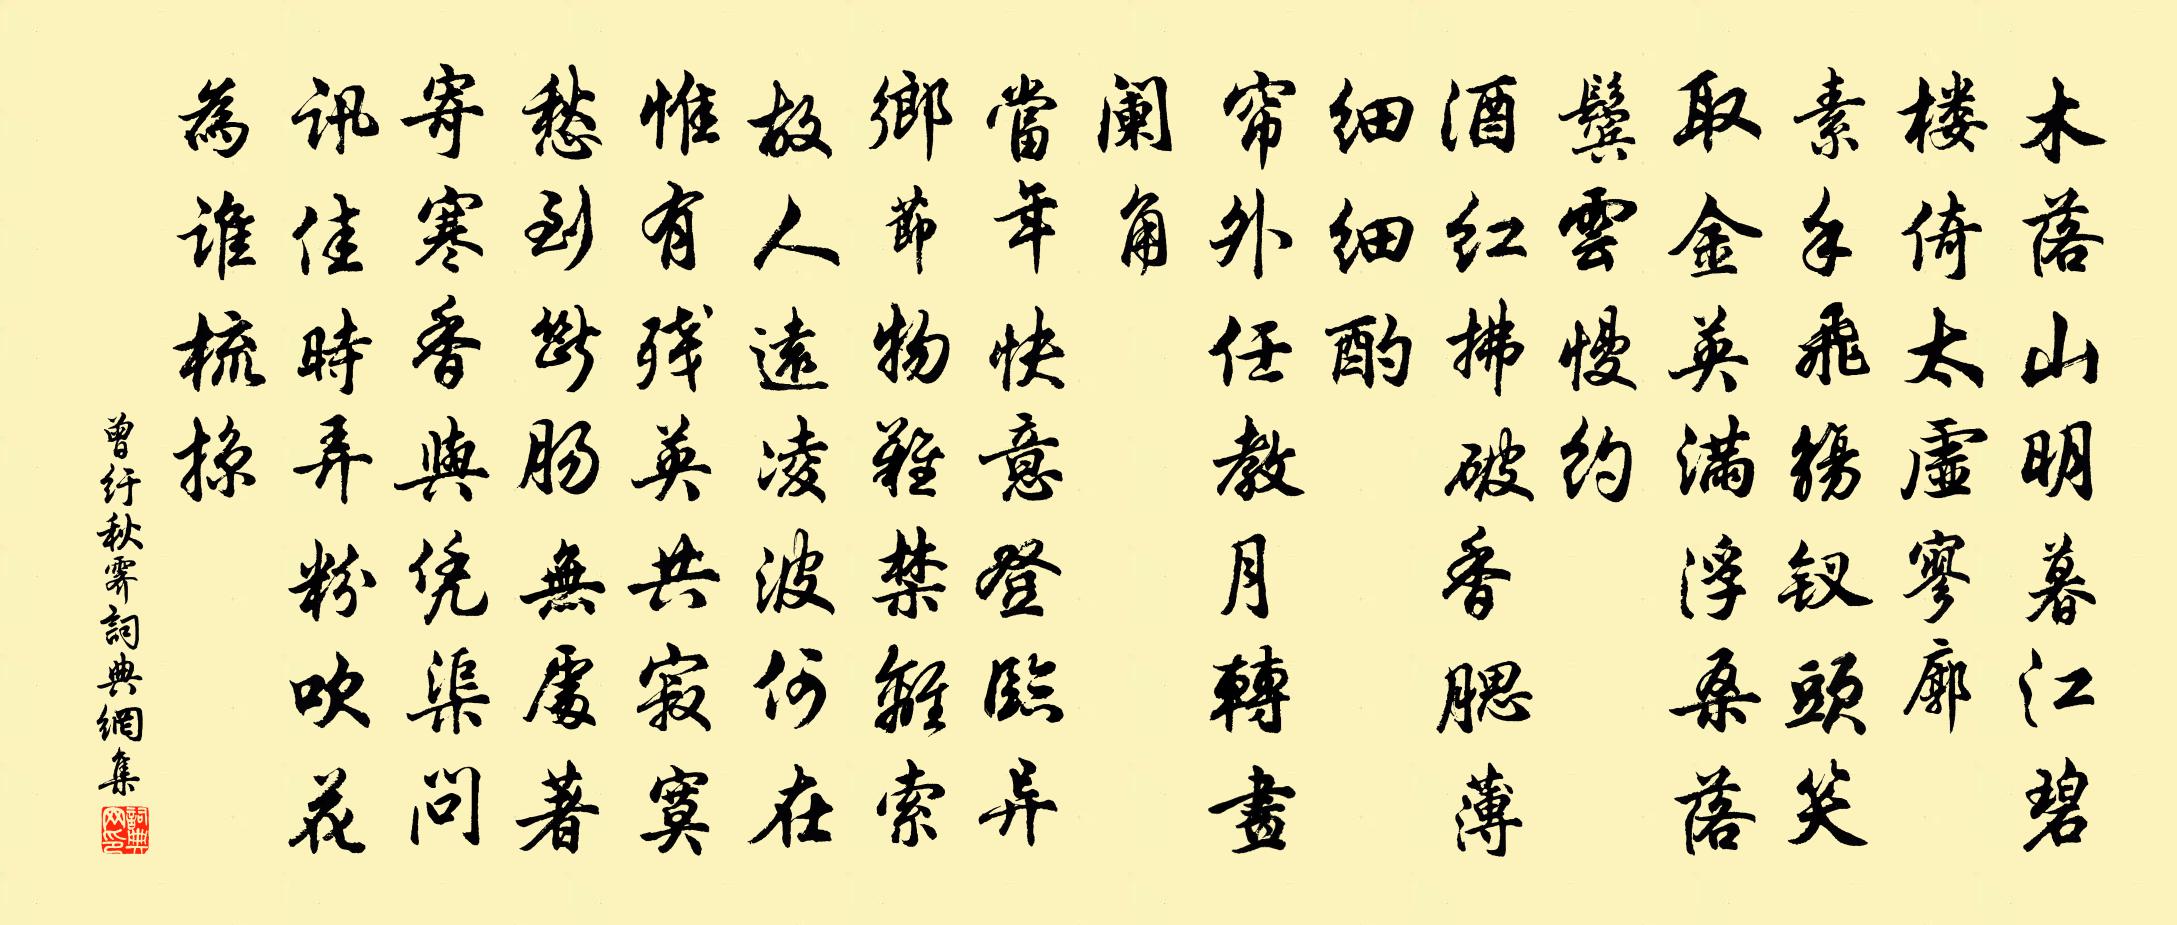 木落山明暮江碧
楼倚太虛寥廓
素手飛觴钗頭笑
取金英满浮桑落
鬓雲慢约
酒红拂破香腮薄
细细酌
帘外任教月轉畫
阑角
當年快意登臨异
鄉節物難禁離索
故人遠凌波何在
惟有残英共寂寞
愁到斷肠無處著
寄寒香與凭渠問
訊佳時弄粉吹花
為誰梳掠
曾纡秋霽詞典網集
詞典网印